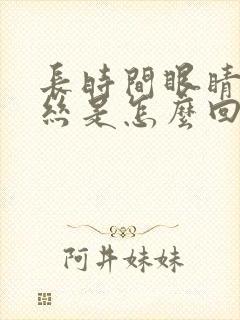 長時間眼睛
絲是怎麼回
阿井妹妹